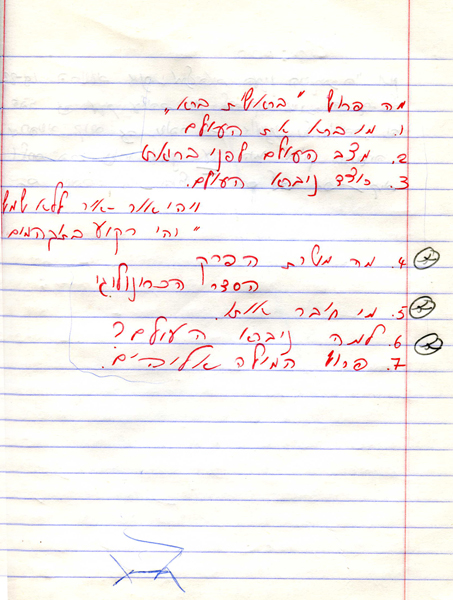 מה פרוש "בראשת ברא"
1. מי ברא את העולם
2. מצב העולם לפני בראתו
3. כיצד ניברא העולם.
ויהי אור - אור ללא שמש
"יהי רקיע בתוך המים
4. מה מטרת הפרק
הסדר הכרונולוגי
5. מי חיבר אותו.
6. למה ניברא העולם?
7. פרוש המילה אליהים.